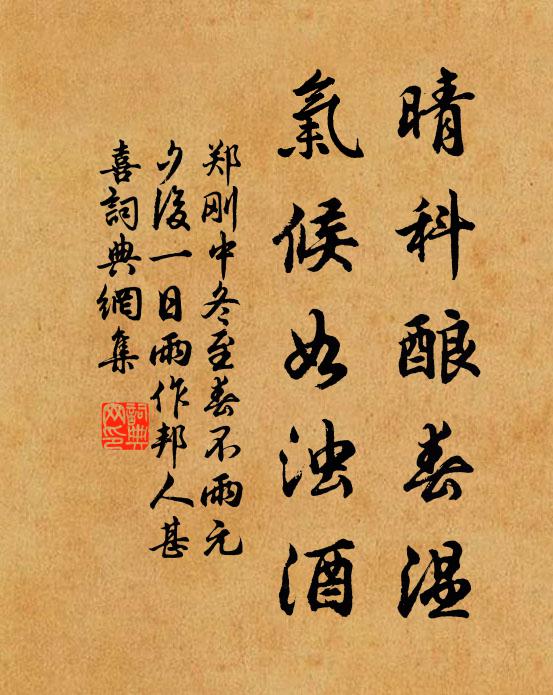 晴科酿春温
氣候如浊酒
郑刚中冬至春不雨元
夕後一日雨作邦人甚
喜詞典網集
詞典
网印